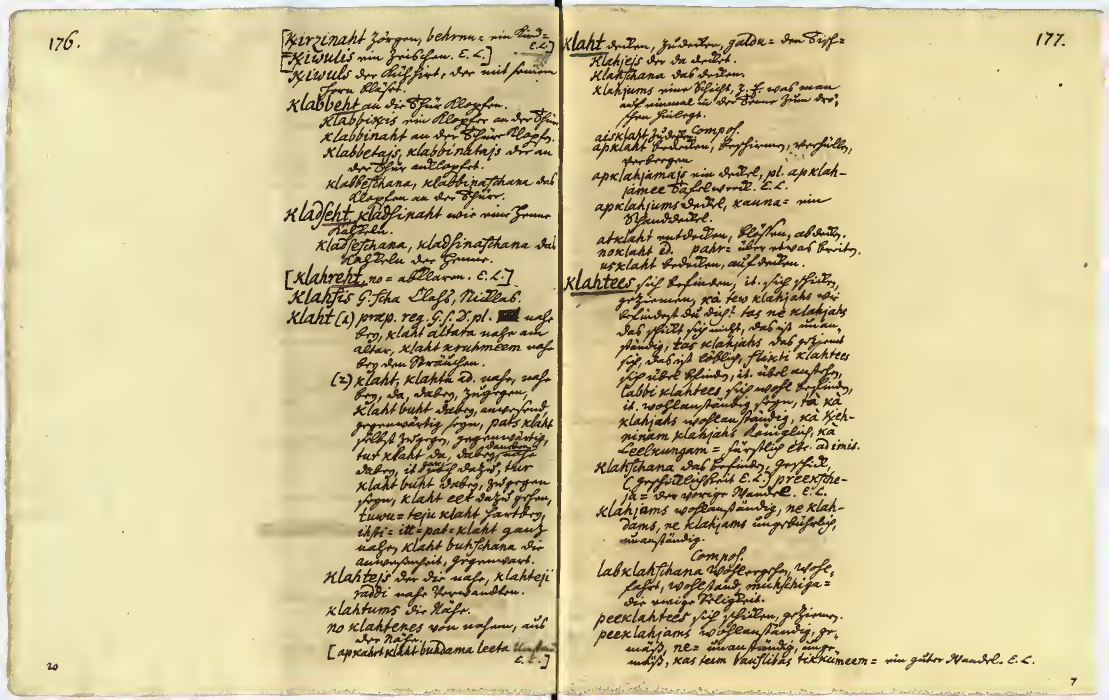 176.
[Kirzinaht zörgen, behrnu= ein Kind=
E.L.]
[Kiwulis ein Zeischen. E.L.]
Kiwuls der Kühhirt, der mit seinem
Horn bläset.
Klabbeht an die Thür klopfen.
klabbikis ein Klopfer an der Thür
klabbinaht an der Thür klopfen.
klabbetajs, klabbinatajs der an
der Thür anklopfet.
klabbeschana, klabbinaschana das
Klopfen an der Thüre.
Kladseht, kladsinaht wie eine Henne
kakeln.
kladseschana, kladsinaschana das
Kakeln der Henne.
[Klahreht, no= abklaren. E.L.]
Klahsis G. scha Clahs, Niclas.
Klaht (1) præp. reg. G. s. D. pl. nahe
bey, klaht altara nahe am
altar, klaht kruhmeem nahe
bey den Sträuchen.
(2) klaht, klahtu ad. nahe, nahe
bey, da, dabey, zugegen,
klaht buht dabey, anwesend,
gegenwärtig seyn, pats klaht
selbst zugegen, gegenwärtig,
tur klaht da, dabey, nahe
dabey, it. dazu, tur
klaht buht dabey, zugegen
seyn, klaht eet dazu gehen,
tuwu= teju klaht hartbey,
ihsti= itt= pat= klaht gantz
nahe, klaht buhschana die
anwesenheit, gegenwart.
Klahtejs der die nahe, klahteji
raddi nahe Verwandten.
klahtums die Nähe.
no klahtenes von nahem, aus
der nähe.
[apkahrt klaht buhdama leeta
E.L.]
20
177.
Klaht decken, zudecken, galdu= den Tisch=
Klahjejs der da decket.
Klahschana das decken.
klahjums eine Schicht, z. E. was man
auf einmal in der Tenne zum dre=
schen hinlegt.
Compos.
aisklaht zudecken
apklaht bedecken, beschirmen, verhüllen,
verbergen
apklahjamajs ein deckel, pl. apklah-
jamee Tafelwerk. E.L.
apklahjums deckel, kauna= ein
Schanddeckel.
atklaht entdecken, blössen, abdecken.
noklaht id. pahr= über etwas breiten.
usklaht bedecken, aufdecken.
Klahtees sich befinden, it. sich schicken,
geziemen, kà tew klahjahs wie
befindest du dich? tas ne klahjahs
das schickt sich nicht, das ist unan=
ständig, tas klahjahs das geziemt
sich, das ist löblich, flikti klahtees
sich übel befinden, it. übel anstehen,
labbi klahtees sich wohl befinden,
it. wohlanständig seyn, tà kà
klahjahs wohlanständig, kà Keh-
ninam klahjahs Königlich, kà
Leelkungam= fürstlich etc. ad imis.
Klahschana das befinden, geschick,
(geschicklichkeit E.L.) preeksche-
ja= der vorige Wandel. E.L.
klahjams wohlanständig, ne klah-
dams, ne klahjams ungebührlich,
unanständig.
Compos.
labklahschana wohlergehen, wohl=
fahrt, wohlstand, muhschiga=
die ewige Seligkeit.
peeklahtees sich schicken, geziemen.
peeklahjams wohlanständig, ge=
mäß, ne= unanständig, unge=
mäß, kas teem bauslibas tikkumeem= ein guter Wandel. E.L.
7